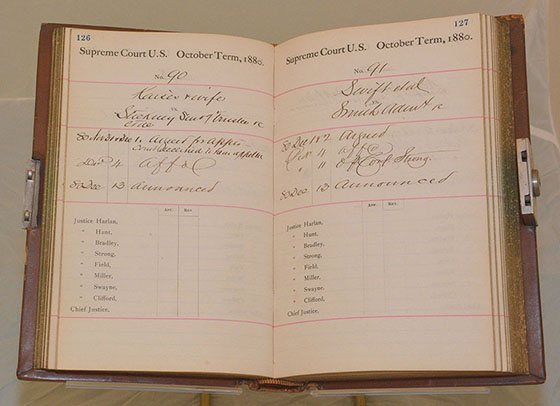 126
Supreme Court U.S. October Term, 1880.
No. 90
Kaiser & wife
vs
Stickney
80 Argued for appts
Court declined to hear appellee
Dec 4 Affd
80 Dec 13 Announced
Aff. Rev.
Justice Harlan,
" Hunt,
" Bradley,
" Strong,
" Field,
" Miller,
" Swayne,
" Clifford,
Chief Justice,
127
Supreme Court U.S. October Term, 1880.
No. 91
Swift et al
vs
Smith
80 Dec 1 & 2 Argued
" 4 Aff
" 11 Op Strong.
80 Dec 13 Announced
Aff. Rev.
Justice Harlan,
" Hunt,
" Bradley,
" Strong,
" Field,
" Miller,
" Swayne,
" Clifford,
Chief Justice,